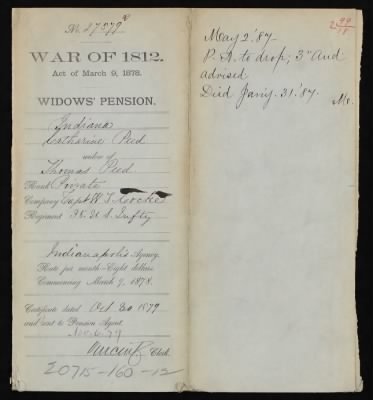 No. 17579
WAR OF 1812.
Act of March 9, 1878.
WIDOWS' PENSION.
Indiana
Catharine Peed
widow of
Thomas Peed
Rank Private
Company Capt W. T.
Regiment 38. U. S. Infty
Indianapolis Agency.
Rate per month—Eight dollars
Commencing March 9, 1878.
Certificate dated Oct. 30 1879
and sent to Pension Agent
Nov. 6. 79
Clerk.
20715-160-12
May 2 '87
P. A. to drop; 3rd Aud
advised
Died Jan'y. 31. '87.
Mc.